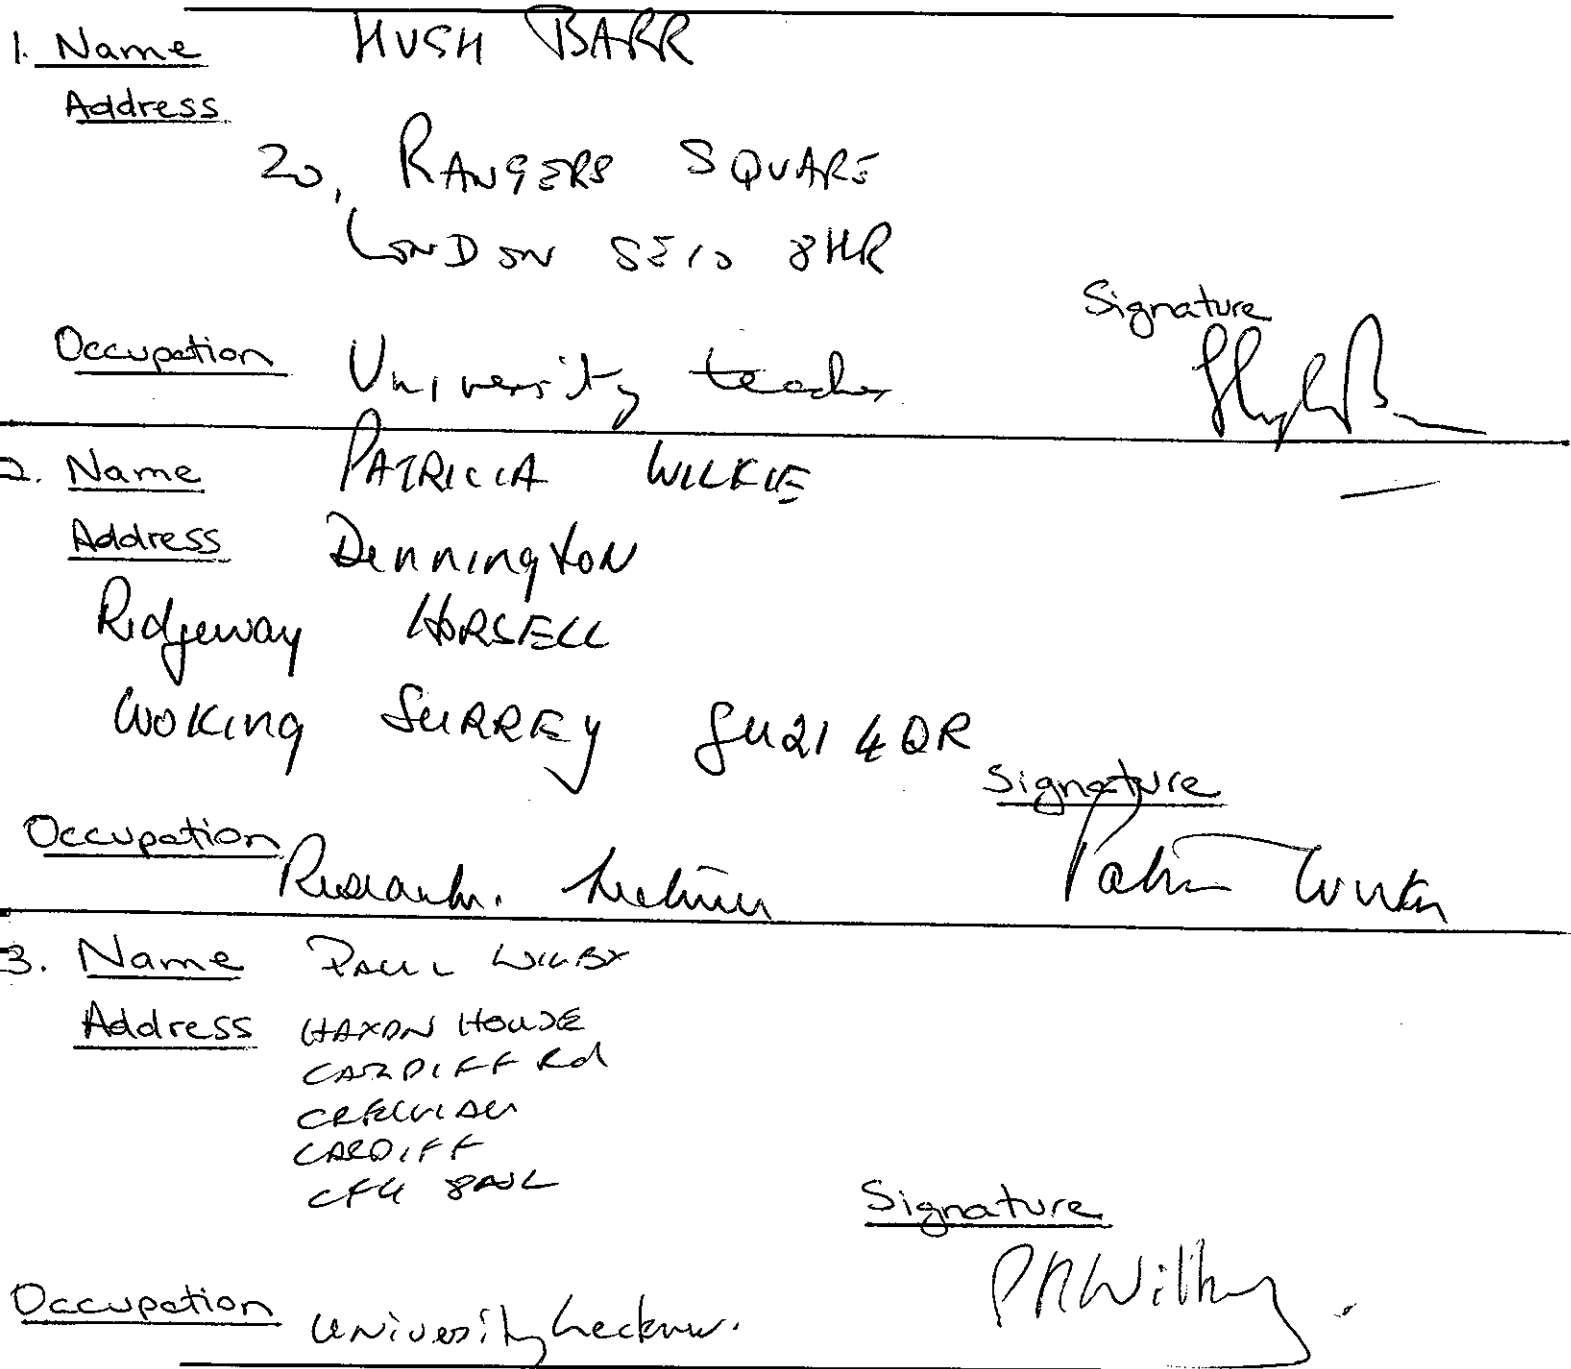 1. Name HUGH BARR
Address
20, RANGERS SQUARE
LONDON SE10 8HR
Signature
Occupation University teacher
2. Name PATRICIA WILKIE
Address Dennington
Ridgeway HORSELL
WOKING SURREY GU21 4QR
Signature
Occupation Research. Lecturer
3. Name PAUL WILBY
Address HAXON HOUSE
CARDIFF Rd
CARDIFF
Signature
PRWilby.
Occupation University Lecturer.